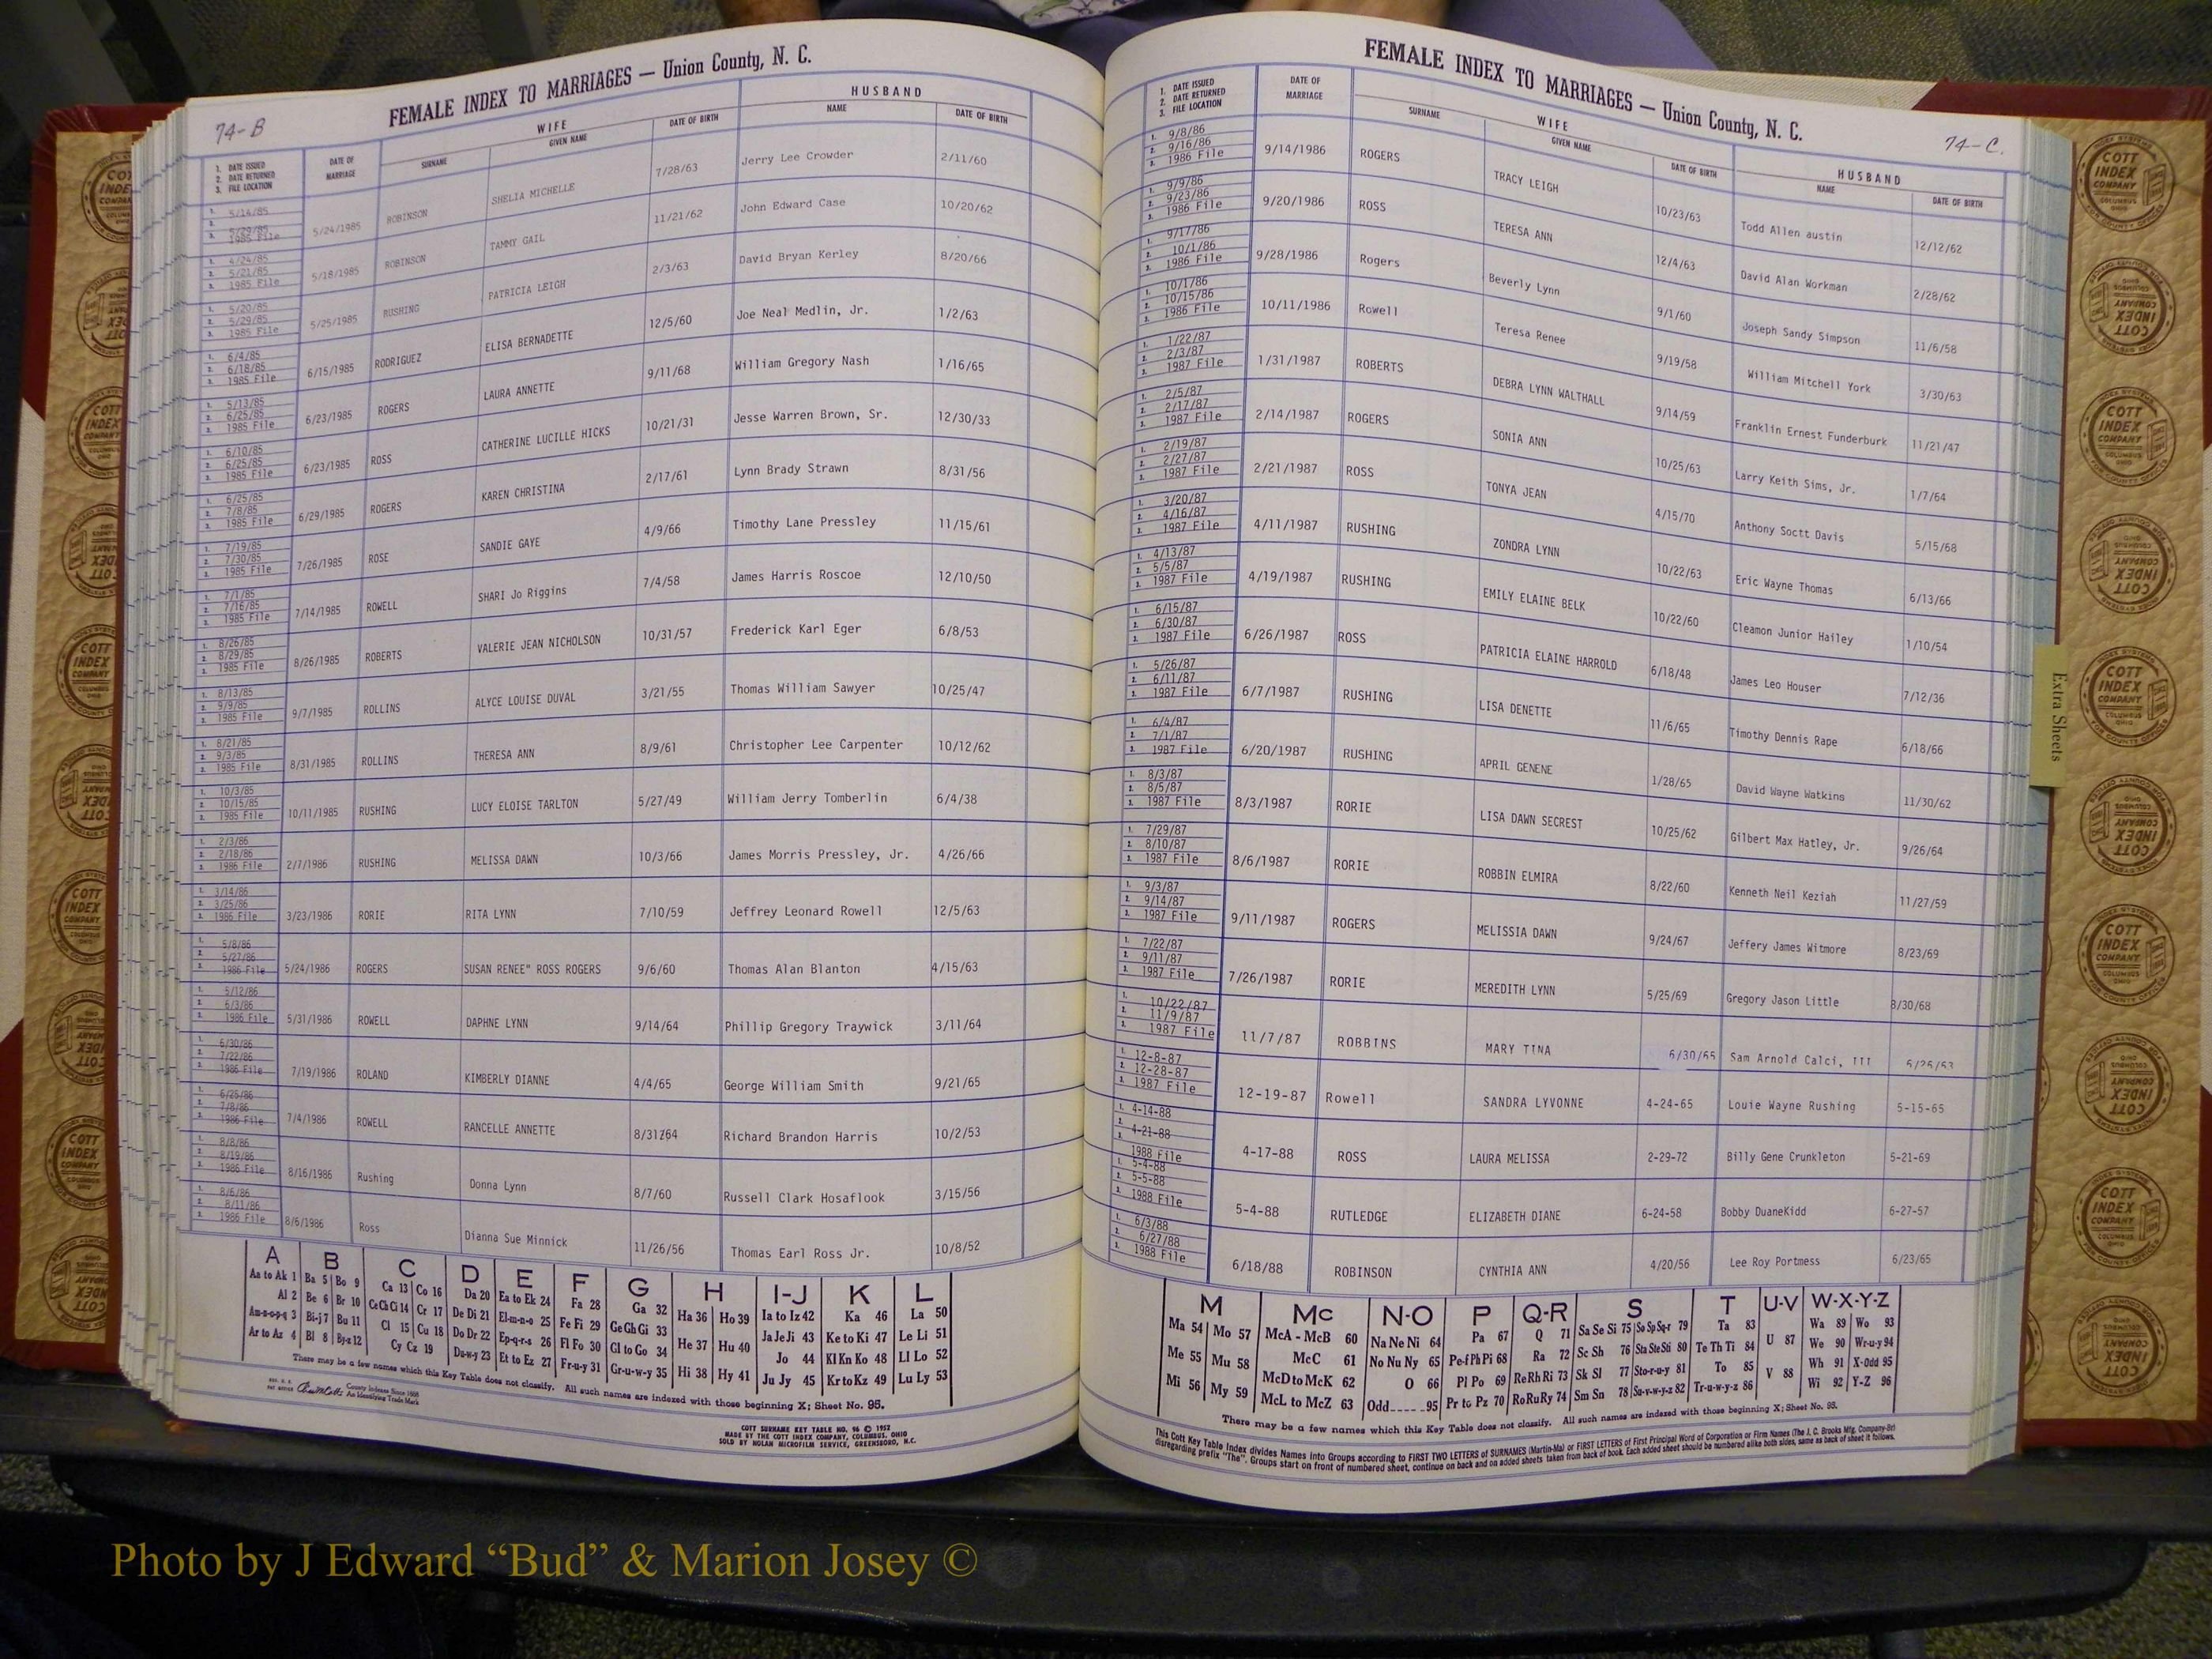 74-B
FEMALE INDEX TO MARRIAGES — Union County, N. C.
1. DATE ISSUED 2. DATE RETURNED 3. FILE LOCATION | DATE OF MARRIAGE | WIFE SURNAME | GIVEN NAME | DATE OF BIRTH | HUSBAND NAME | DATE OF BIRTH
1. 5/14/85 2. 5/29/85 3. 1985 File 5/24/1985 ROBINSON SHELIA MICHELLE 7/28/63 Jerry Lee Crowder 2/11/60
1. 4/24/85 2. 5/21/85 3. 1985 File 5/18/1985 ROBINSON TAMMY GAIL 11/21/62 John Edward Case 10/20/62
1. 5/20/85 2. 5/29/85 3. 1985 File 5/25/1985 RUSHING PATRICIA LEIGH 2/3/63 David Bryan Kerley 8/20/66
1. 6/4/85 2. 6/18/85 3. 1985 File 6/15/1985 RODRIGUEZ ELISA BERNADETTE 12/5/60 Joe Neal Medlin, Jr. 1/2/63
1. 5/13/85 2. 6/25/85 3. 1985 File 6/23/1985 ROGERS LAURA ANNETTE 9/11/68 William Gregory Nash 1/16/65
1. 6/10/85 2. 6/25/85 3. 1985 File 6/23/1985 ROSS CATHERINE LUCILLE HICKS 10/21/31 Jesse Warren Brown, Sr. 12/30/33
1. 6/25/85 2. 7/8/85 3. 1985 File 6/29/1985 ROGERS KAREN CHRISTINA 2/17/61 Lynn Brady Strawn 8/31/56
1. 7/19/85 2. 7/30/85 3. 1985 File 7/26/1985 ROSE SANDIE GAYE 4/9/66 Timothy Lane Pressley 11/15/61
1. 7/1/85 2. 7/16/85 3. 1985 File 7/14/1985 ROWELL SHARI Jo Riggins 7/4/58 James Harris Roscoe 12/10/50
1. 8/26/85 2. 8/29/85 3. 1985 File 8/26/1985 ROBERTS VALERIE JEAN NICHOLSON 10/31/57 Frederick Karl Eger 6/8/53
1. 8/13/85 2. 9/9/85 3. 1985 File 9/7/1985 ROLLINS ALYCE LOUISE DUVAL 3/21/55 Thomas William Sawyer 10/25/47
1. 8/21/85 2. 9/3/85 3. 1985 File 8/31/1985 ROLLINS THERESA ANN 8/9/61 Christopher Lee Carpenter 10/12/62
1. 10/3/85 2. 10/15/85 3. 1985 File 10/11/1985 RUSHING LUCY ELOISE TARLTON 5/27/49 William Jerry Tomberlin 6/4/38
1. 2/3/86 2. 2/18/86 3. 1986 File 2/7/1986 RUSHING MELISSA DAWN 10/3/66 James Morris Pressley, Jr. 4/26/66
1. 3/14/86 2. 3/25/86 3. 1986 File 3/23/1986 RORIE RITA LYNN 7/10/59 Jeffrey Leonard Rowell 12/5/63
1. 5/8/86 2. 5/27/86 3. 1986 File 5/24/1986 ROGERS SUSAN RENEE" ROSS ROGERS 9/6/60 Thomas Alan Blanton 4/15/63
1. 5/12/86 2. 6/3/86 3. 1986 File 5/31/1986 ROWELL DAPHNE LYNN 9/14/64 Phillip Gregory Traywick 3/11/64
1. 6/30/86 2. 7/22/86 3. 1986 File 7/19/1986 ROLAND KIMBERLY DIANNE 4/4/65 George William Smith 9/21/65
1. 6/25/86 2. 7/8/86 3. 1986 File 7/4/1986 ROWELL RANCELLE ANNETTE 8/31264 Richard Brandon Harris 10/2/53
1. 8/8/86 2. 8/19/86 3. 1986 File 8/16/1986 Rushing Donna Lynn 8/7/60 Russell Clark Hosaflook 3/15/56
1. 8/6/86 2. 8/11/86 3. 1986 File 8/6/1986 Ross Dianna Sue Minnick 11/26/56 Thomas Earl Ross Jr. 10/8/52
A B C D E F G H I-J K L
Aa to Ak 1 Ba 5 Bo 9 Ca 13 Co 16 Da 20 Ea to Ek 24 Fa 28 Ga 32 Ha 36 Ho 39 Ia to Iz 42 Ka 46 La 50
Al 2 Be 6 Br 10 Ce Ch Ci 14 Cr 17 De Di 21 El-m-n-o 25 Fe Fi 29 Ge Gh Gi 33 He 37 Hu 40 Ja Je Ji 43 Ke to Ki 47 Le Li 51
Am-n-o-p-q 3 Bi-j 7 Bu 11 Cl 15 Cu 18 Do Dr 22 Ep-q-r-s 26 Fl Fo 30 Gl to Go 34 Hi 38 Hy 41 Jo 44 Kl Kn Ko 48 Ll Lo 52
Ar to Az 4 Bl 8 By-z 12 Cy Cz 19 Du-w-y 23 Et to Ez 27 Fr-u-y 31 Gr-u-w-y 35 Ju Jy 45 Kr to Kz 49 Lu Ly 53
There may be a few names which this Key Table does not classify. All such names are indexed with those beginning X; Sheet No. 95.
County Indexes Since 1888
An Identifying Trade Mark
COTT SURNAME KEY TABLE NO. 96 © 1952
MADE BY THE COTT INDEX COMPANY, COLUMBUS, OHIO
SOLD BY NOLAN MICROFILM SERVICE, GREENSBORO, N.C.
FEMALE INDEX TO MARRIAGES — Union County, N. C.
74-C.
1. DATE ISSUED 2. DATE RETURNED 3. FILE LOCATION | DATE OF MARRIAGE | WIFE SURNAME | GIVEN NAME | DATE OF BIRTH | HUSBAND NAME | DATE OF BIRTH
1. 9/8/86 2. 9/16/86 3. 1986 File 9/14/1986 ROGERS TRACY LEIGH 10/23/63 Todd Allen austin 12/12/62
1. 9/9/86 2. 9/23/86 3. 1986 File 9/20/1986 ROSS TERESA ANN 12/4/63 David Alan Workman 2/28/62
1. 9/17/86 2. 10/1/86 3. 1986 File 9/28/1986 Rogers Beverly Lynn 9/1/60 Joseph Sandy Simpson 11/6/58
1. 10/1/86 2. 10/15/86 3. 1986 File 10/11/1986 Rowell Teresa Renee 9/19/58 William Mitchell York 3/30/63
1. 1/22/87 2. 2/3/87 3. 1987 File 1/31/1987 ROBERTS DEBRA LYNN WALTHALL 9/14/59 Franklin Ernest Funderburk 11/21/47
1. 2/5/87 2. 2/17/87 3. 1987 File 2/14/1987 ROGERS SONIA ANN 10/25/63 Larry Keith Sims, Jr. 1/7/64
1. 2/19/87 2. 2/27/87 3. 1987 File 2/21/1987 ROSS TONYA JEAN 4/15/70 Anthony Soctt Davis 5/15/68
1. 3/20/87 2. 4/16/87 3. 1987 File 4/11/1987 RUSHING ZONDRA LYNN 10/22/63 Eric Wayne Thomas 6/13/66
1. 4/13/87 2. 5/5/87 3. 1987 File 4/19/1987 RUSHING EMILY ELAINE BELK 10/22/60 Cleamon Junior Hailey 1/10/54
1. 6/15/87 2. 6/30/87 3. 1987 File 6/26/1987 ROSS PATRICIA ELAINE HARROLD 6/18/48 James Leo Houser 7/12/36
1. 5/26/87 2. 6/11/87 3. 1987 File 6/7/1987 RUSHING LISA DENETTE 11/6/65 Timothy Dennis Rape 6/18/66
1. 6/4/87 2. 7/1/87 3. 1987 File 6/20/1987 RUSHING APRIL GENENE 1/28/65 David Wayne Watkins 11/30/62
1. 8/3/87 2. 8/5/87 3. 1987 File 8/3/1987 RORIE LISA DAWN SECREST 10/25/62 Gilbert Max Hatley, Jr. 9/26/64
1. 7/29/87 2. 8/10/87 3. 1987 File 8/6/1987 RORIE ROBBIN ELMIRA 8/22/60 Kenneth Neil Keziah 11/27/59
1. 9/3/87 2. 9/14/87 3. 1987 File 9/11/1987 ROGERS MELISSIA DAWN 9/24/67 Jeffery James Witmore 8/23/69
1. 7/22/87 2. 9/11/87 3. 1987 File 7/26/1987 RORIE MEREDITH LYNN 5/25/69 Gregory Jason Little 8/30/68
1. 10/22/87 2. 11/9/87 3. 1987 File 11/7/87 ROBBINS MARY TINA 6/30/65 Sam Arnold Calci, III 6/25/53
1. 12-8-87 2. 12-28-87 3. 1987 File 12-19-87 Rowell SANDRA LYVONNE 4-24-65 Louie Wayne Rushing 5-15-65
1. 4-14-88 2. 4-21-88 3. 1988 File 4-17-88 ROSS LAURA MELISSA 2-29-72 Billy Gene Crunkleton 5-21-69
1. 5-4-88 2. 5-5-88 3. 1988 File 5-4-88 RUTLEDGE ELIZABETH DIANE 6-24-58 Bobby DuaneKidd 6-27-57
1. 6/3/88 2. 6/27/88 3. 1988 File 6/18/88 ROBINSON CYNTHIA ANN 4/20/56 Lee Roy Portmess 6/23/65
M Mc N-O P Q-R S T U-V W-X-Y-Z
Ma 54 Mo 57 McA - McB 60 Na Ne Ni 64 Pa 67 Q 71 Sa Se Si 75 So Sp Sq-r 79 Ta 83 U 87 Wa 89 Wo 93
Me 55 Mu 58 McC 61 No Nu Ny 65 Pe-f Ph Pi 68 Ra 72 Sc Sh 76 Sta Ste Sti 80 Te Th Ti 84 V 88 We 90 Wr-u-y 94
Mi 56 My 59 McD to McK 62 O 66 Pl Po 69 Re Rh Ri 73 Sk Sl 77 Sto-r-u-y 81 To 85 Wh 91 X-Odd 95
McL to McZ 63 Odd-----95 Pr to Pz 70 Ro Ru Ry 74 Sm Sn 78 Su-v-w-y-z 82 Tr-u-w-y-z 86 Wi 92 Y-Z 96
There may be a few names which this Key Table does not classify. All such names are indexed with those beginning X; Sheet No. 95.
This Cott Key Table Index divides Names into Groups according to FIRST TWO LETTERS of SURNAMES (Martin-Ma) or FIRST LETTERS of First Principal Word of Corporation or Firm Names (The J. C. Brooks Mfg. Company-Br)
disregarding prefix "The". Groups start on front of numbered sheet, continue on back and on added sheets taken from back of book. Each added sheet should be numbered alike both sides, same as back of sheet it follows.
Extra Sheets
COTT INDEX COMPANY COLUMBUS OHIO
Photo by J Edward “Bud” & Marion Josey ©